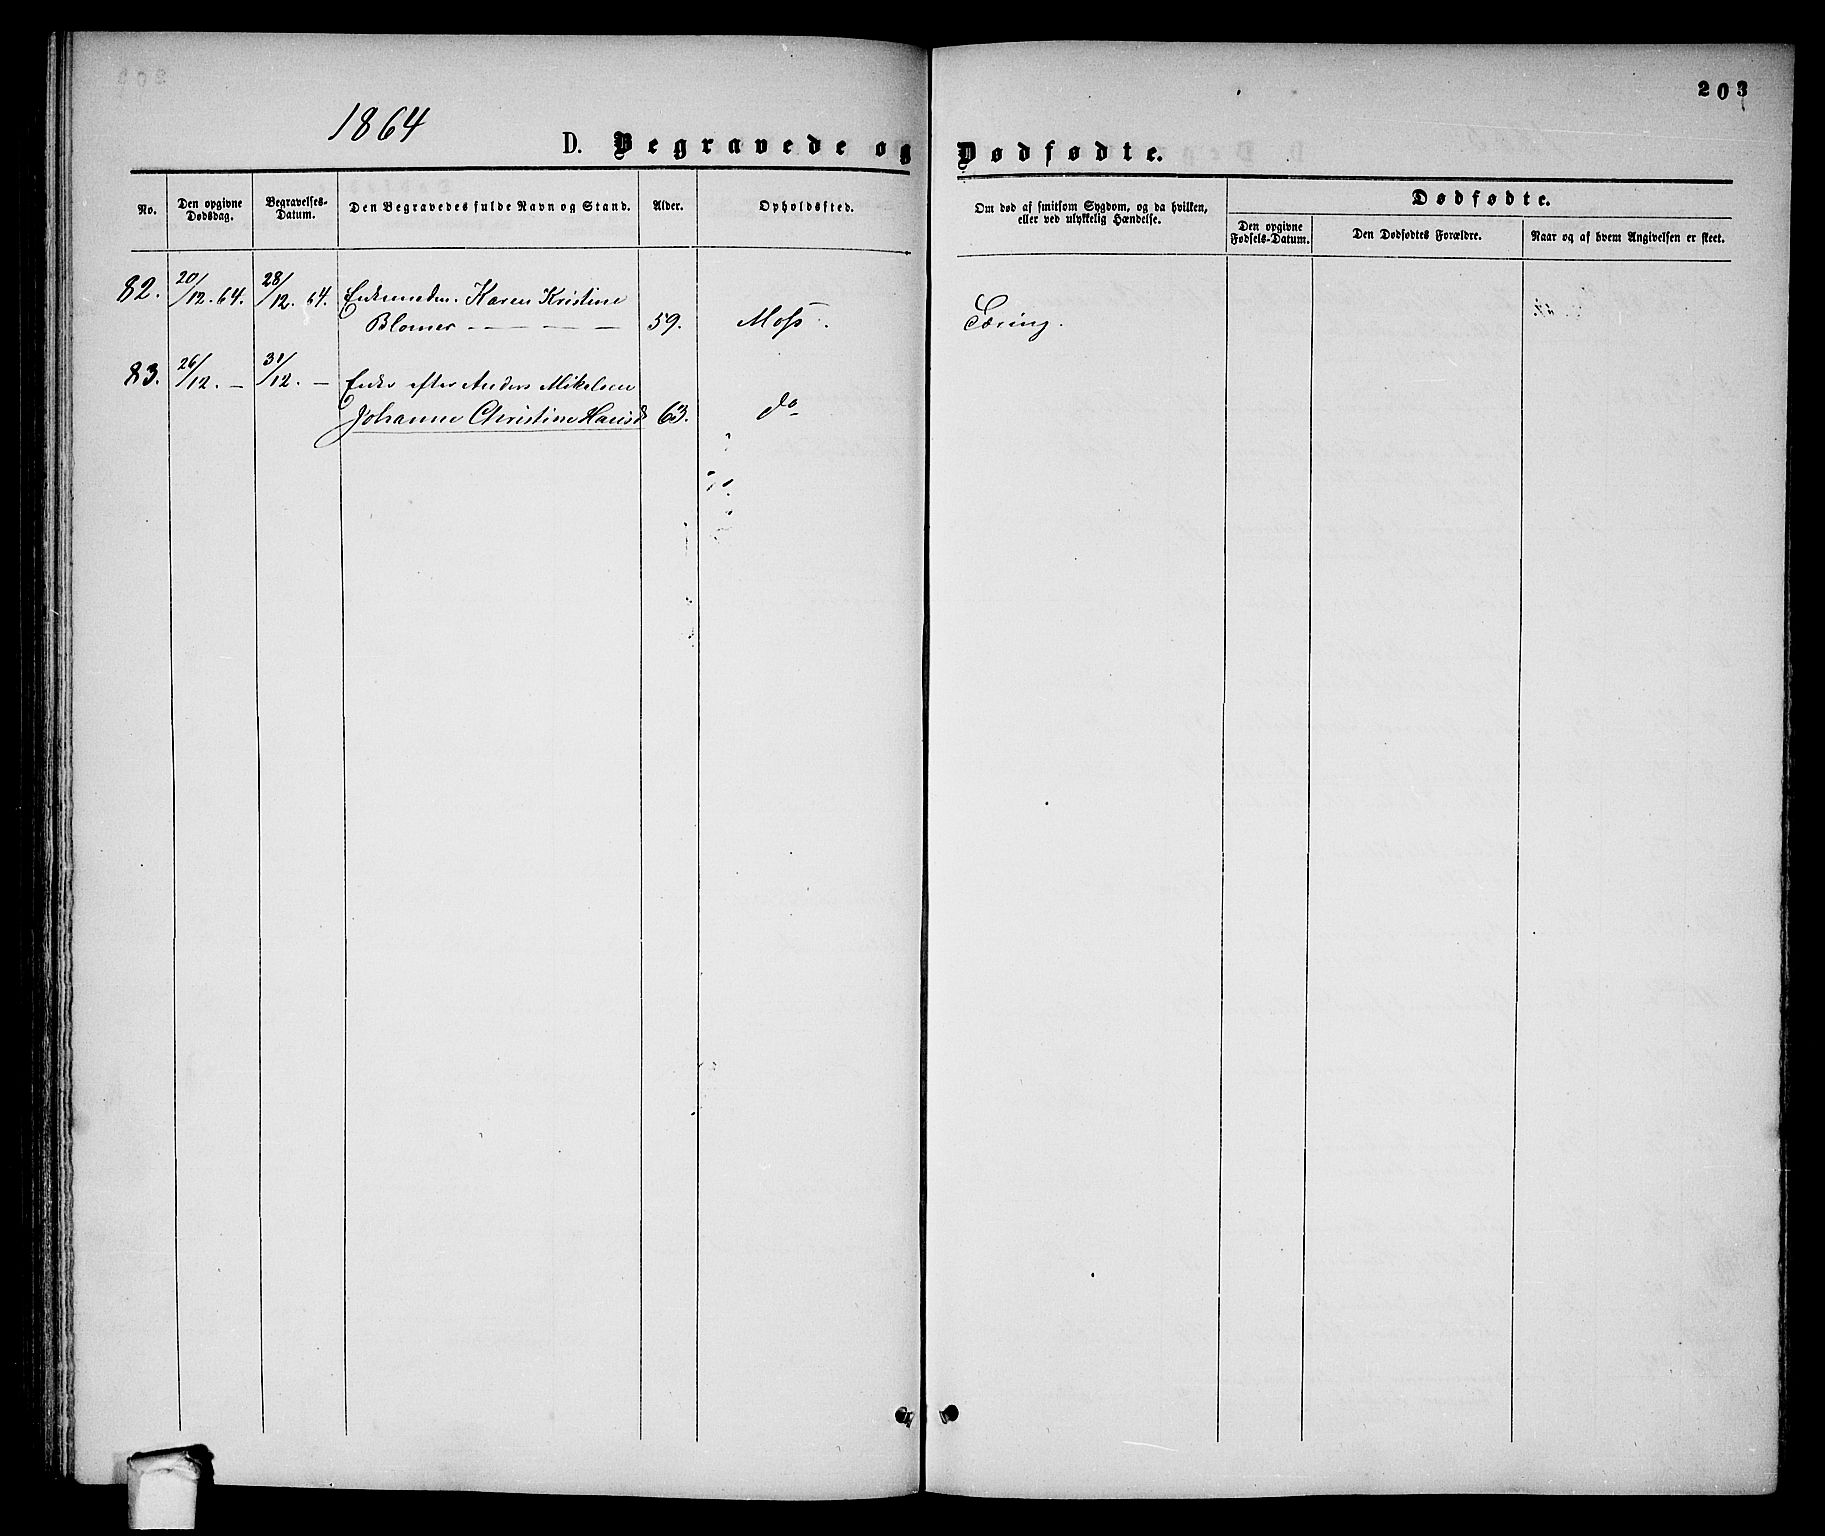 203
1864
D. Begravede og Dødfødte.
No.
Den opgivne Dødsdag.
Begravelses-Datum.
Den Begravedes fulde Navn og Stand.
Alder.
Opholdssted.
Om død af smitsom Sygdom, og da hvilken,
eller ved ulykkelig Hændelse.
Dødfødte.
Den opgivne Fødsels-Datum.
Den Dødfødtes Forældre.
Naar og af hvem Angivelsen er skeet.
82. 20/12. 64. 28/12. 64. Karen Kristine
59. Moss. Tæring.
83. 26/12. — 31/12. — Enke efter Anders Mikelsen
Johanne Christine Hansd 63. do